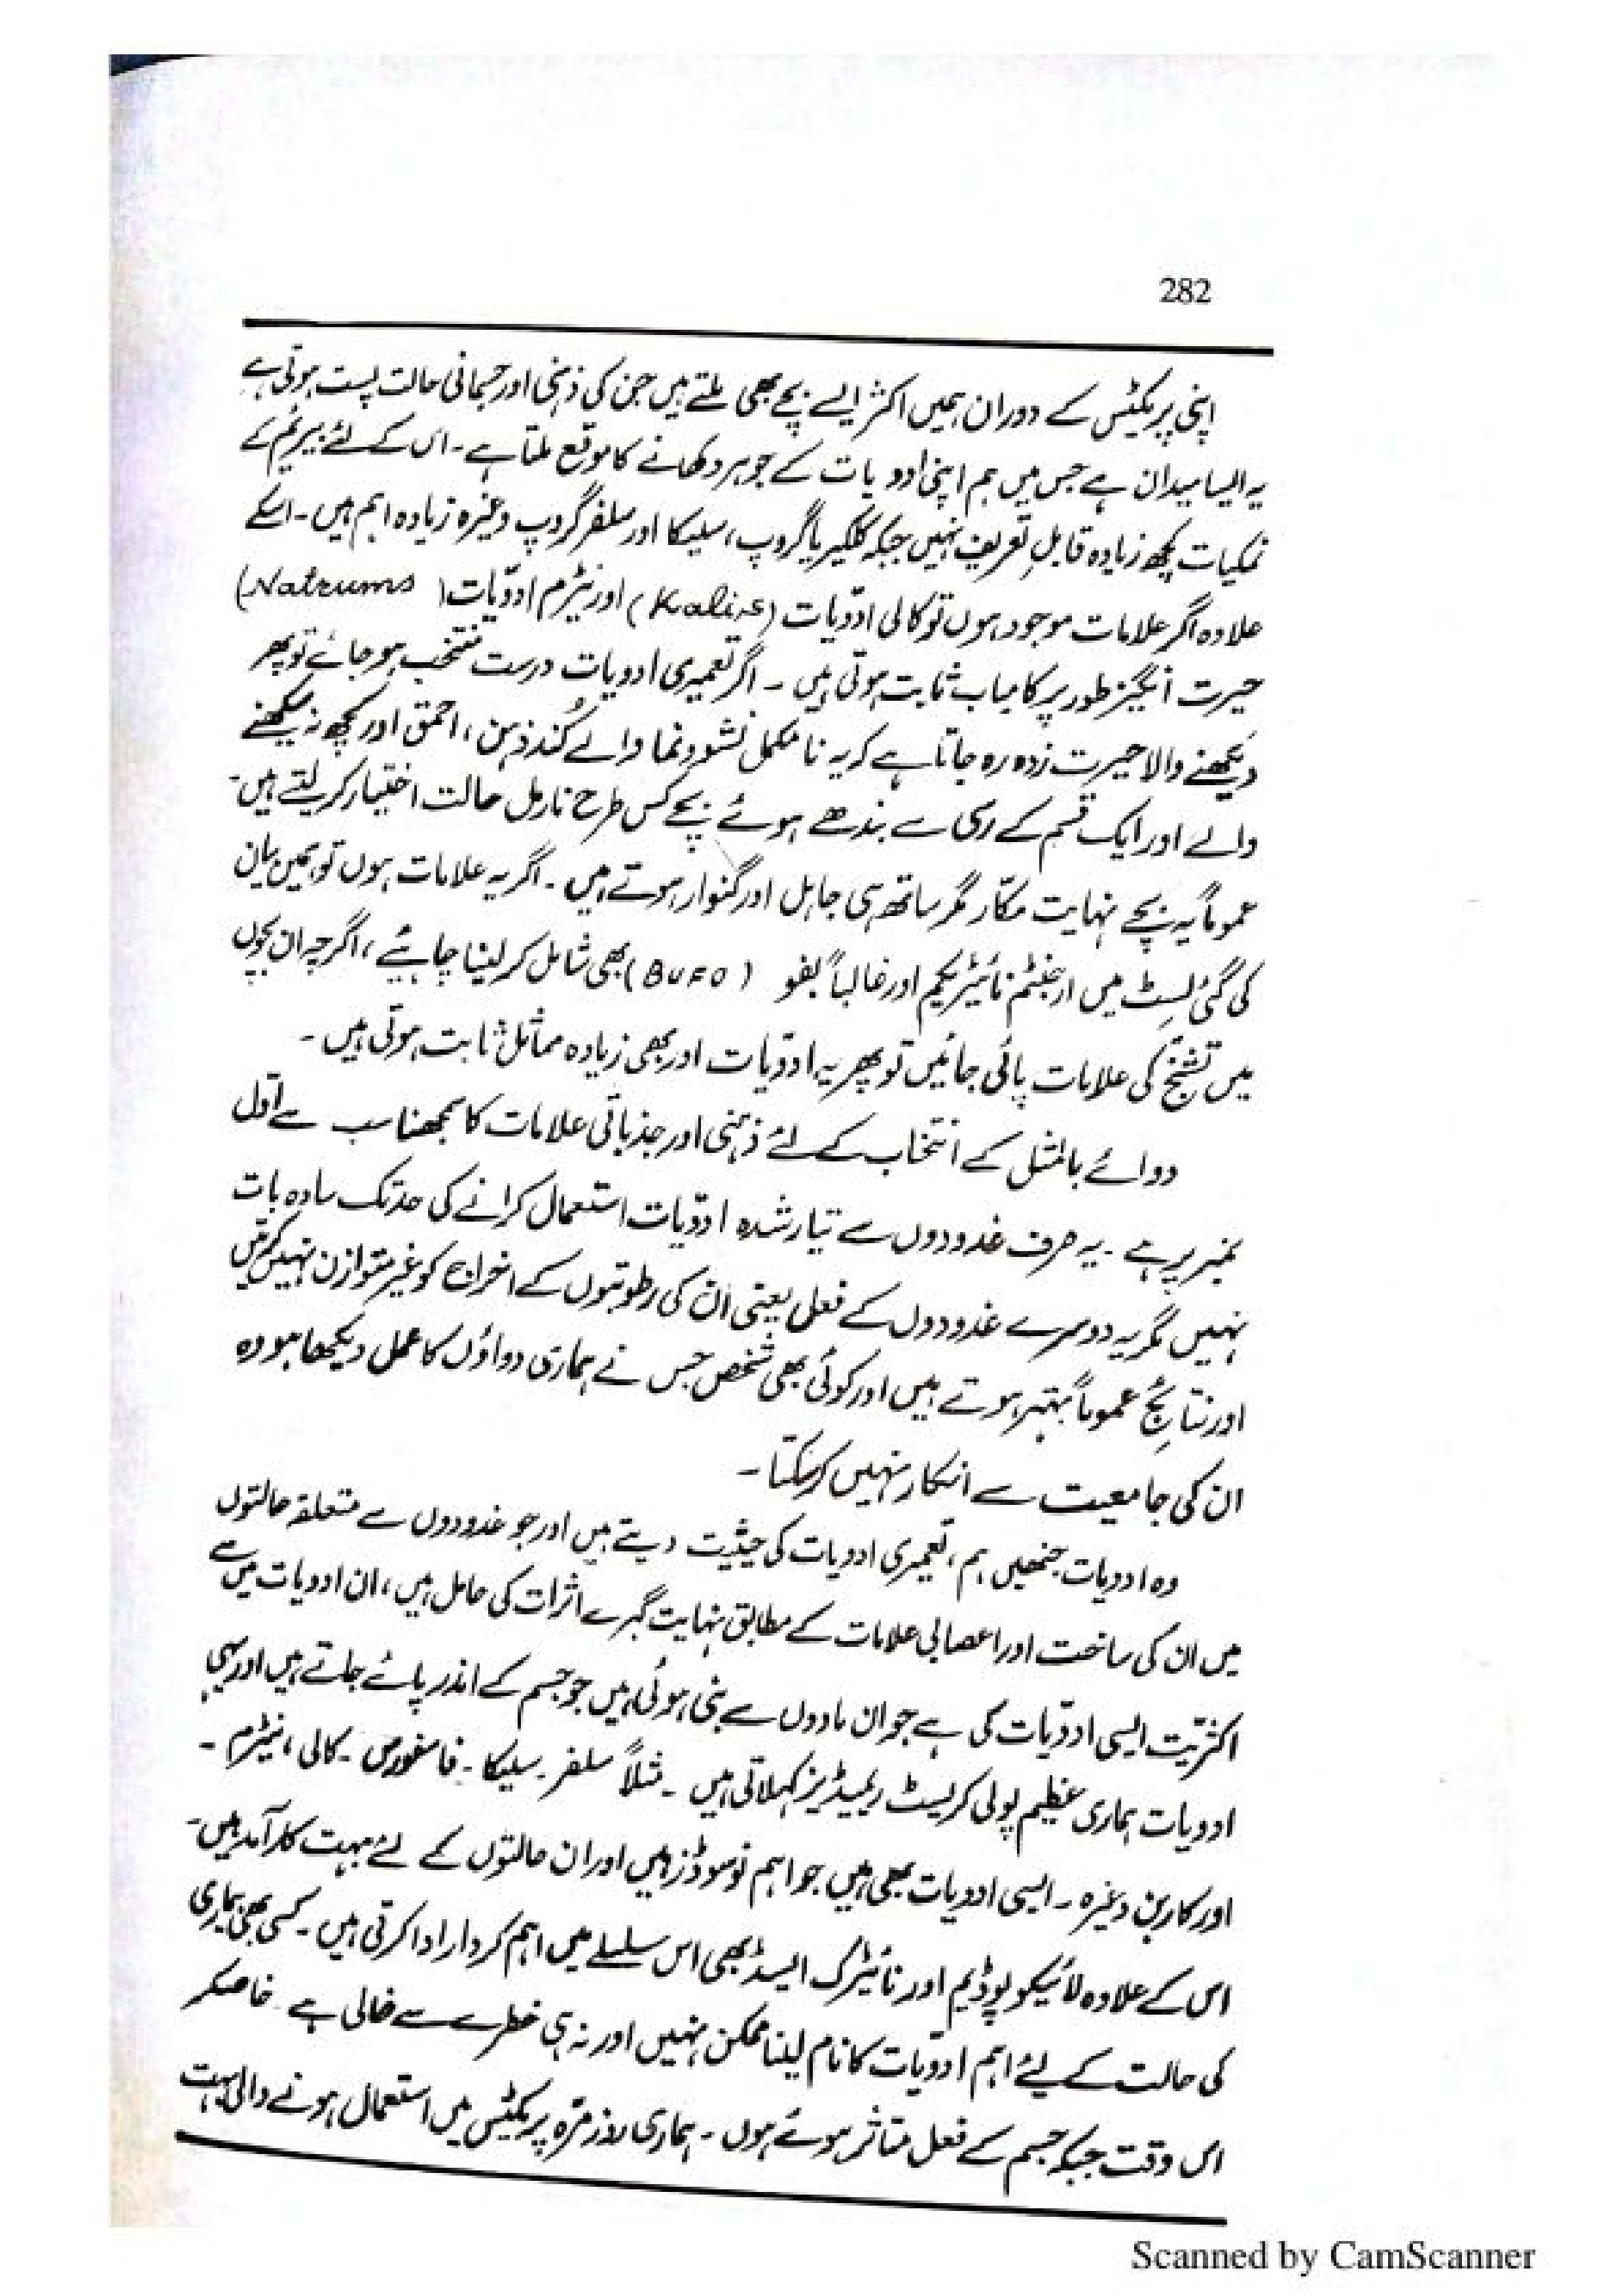 282
اپنی پریکٹس کے دوران ہمیں اکثر ایسے بچے بھی ملتے ہیں جن کی ذہنی اور جسمانی حالت پست ہوتی ہے
یہ ایسا میدان ہے جس میں ہم اپنی ادویات کے جوہر دکھانے کا موقع ملتا ہے۔ اس کے لئے بیریم کے
نمکیات کچھ زیادہ قابلِ تعریف نہیں جبکہ کلکیریا گروپ، سلیکا اور سلفر گروپ وغیرہ زیادہ اہم ہیں۔ اسکے
علاوہ اگر علامات موجود ہوں تو کالی ادویّات (Kali,s) اور نیٹرم ادویّات (Natrums)
حیرت انگیز طور پر کامیاب ثابت ہوتی ہیں ۔ اگر تعمیری ادویات درست منتخب ہو جائے تو پھر
دیکھنے والا حیرت زدہ رہ جاتا ہے کہ یہ نا مکمل نشوونما والے کُند ذہن، احمق اور کچھ نہ سیکھنے
والے اور ایک قسم کے رسی سے بندھے ہوئے بچے کس طرح نارمل حالت اختیار کر لیتے ہیں۔
عموماً یہ بچے نہایت مکّار مگر ساتھ ہی جاہل اور گنوار ہوتے ہیں ۔ اگر یہ علامات ہوں تو ہمیں بیان
کی گئی لِسٹ میں ارجنٹم نائیٹریکم اور غالباً بفو (BUFO) بھی شامل کر لینا چاہیئے، اگرچہ ان بچوں
میں تشنّج کی علامات پائی جائیں تو پھر یہ ادویّات اور بھی زیادہ مماثل ثابت ہوتی ہیں ۔
دوائے بالمثل کے انتخاب کے لئے ذہنی اور جذباتی علامات کا سمجھنا سب سے اوّل
نمبر پر ہے ۔ یہ صرف غدودوں سے تیار شدہ ادویّات استعمال کرانے کی حد تک سادہ بات
نہیں مگر یہ دوسرے غدودوں کے فعل یعنی ان کی رطوبتوں کے اخراج کو غیر متوازن نہیں کرتیں
اور نتائج عموماً بہتر ہوتے ہیں اور کوئی بھی شخص جس نے ہماری دواؤں کا عمل دیکھا ہو وہ
ان کی جامعیت سے انکار نہیں کر سکتا ۔
وہ ادویات جنھیں ہم، تعمیری ادویات کی حیثیت دیتے ہیں اور جو غدودوں سے متعلقہ حالتوں
میں ان کی ساخت اور اعصابی علامات کے مطابق نہایت گہرے اثرات کی حامل ہیں، ان ادویات میں سے
اکثریّت ایسی ادویّات کی ہے جو ان مادوں سے بنی ہوئی ہیں جو جسم کے اندر پائے جاتے ہیں اور یہی
ادویات ہماری عظیم پولی کریسٹ ریمیڈیز کہلاتی ہیں ۔ مثلاً سلفر ۔ سلیکا ۔ فاسفورس ۔ کالی، نیٹرم ۔
اور کاربن وغیرہ ۔ ایسی ادویات بھی ہیں جو اہم نوسوڈز ہیں اور ان حالتوں کے لئے بہت کارآمد ہیں۔
اس کے علاوہ لائیکوپوڈیم اور نائیٹرک ایسڈ بھی اس سلسلے میں اہم کردار ادا کرتی ہیں ۔ کسی بھی بیماری
کی حالت کے لیئے اہم ادویّات کا نام لینا ممکن نہیں اور نہ ہی خطرے سے خالی ہے خاصکر
اس وقت جبکہ جسم کے فعل متاثر ہوئے ہوں ۔ ہماری روزمرّہ پریکٹس میں استعمال ہونے والی بہت
Scanned by CamScanner